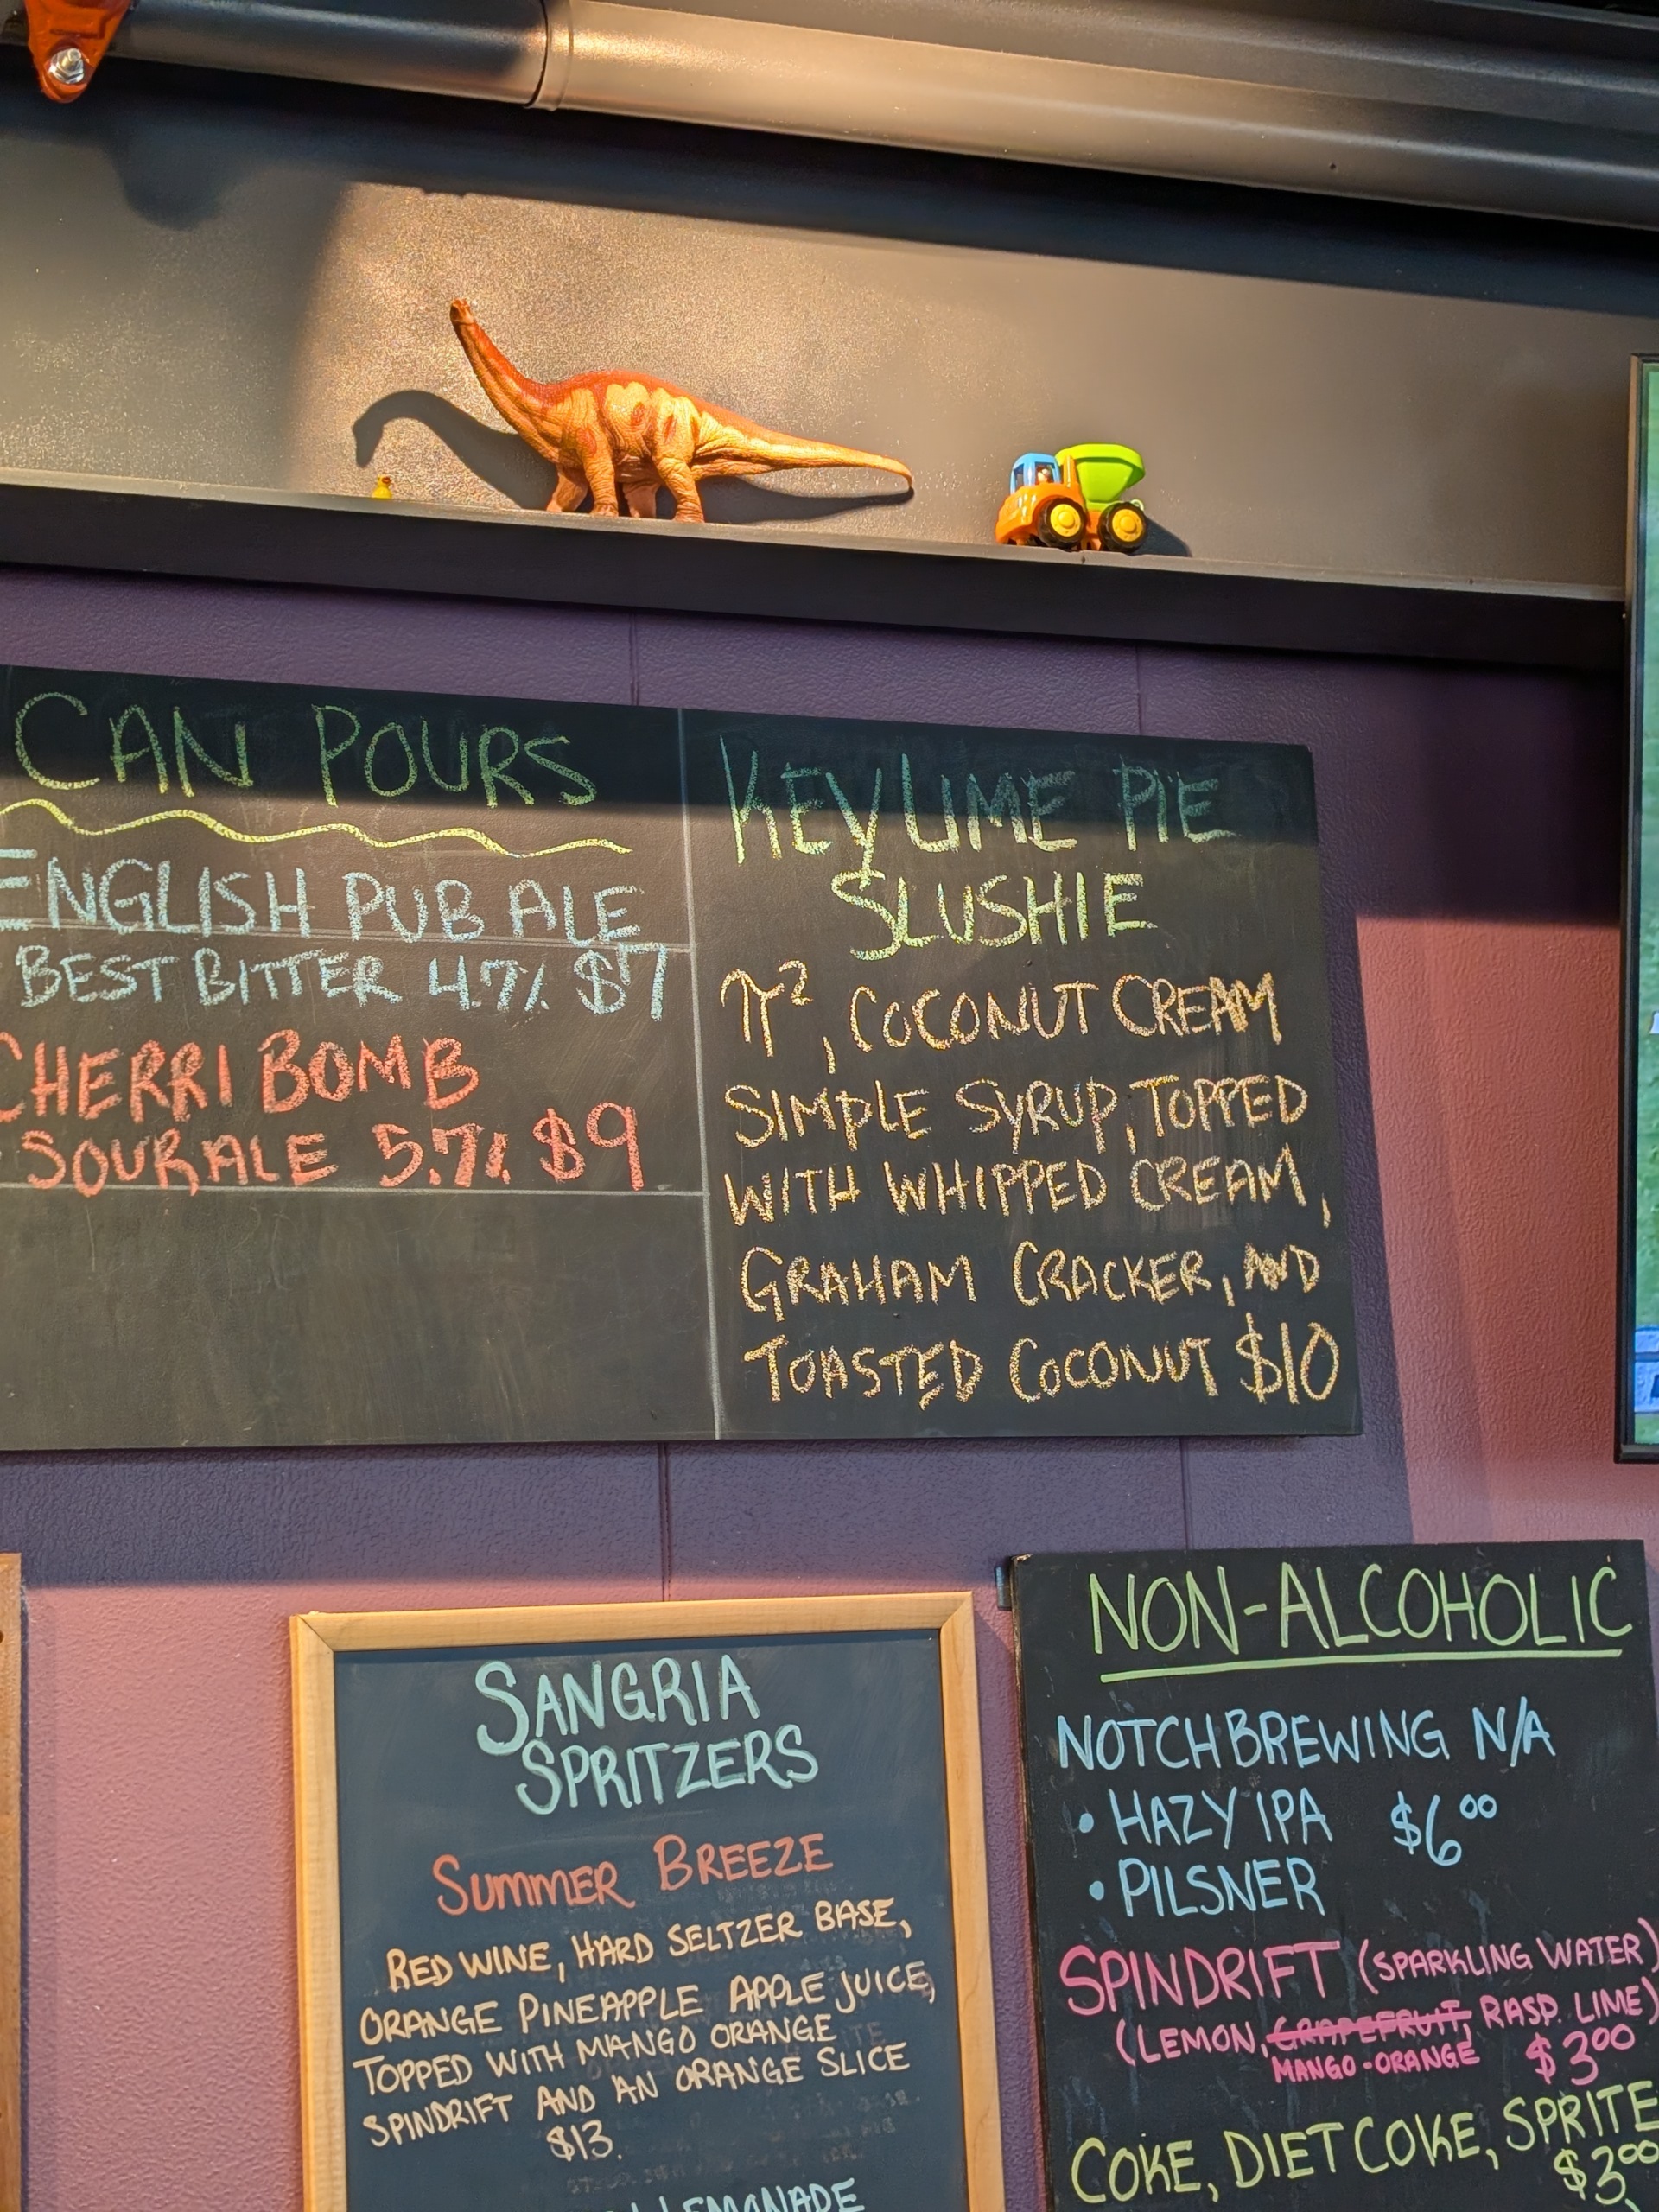 CAN POURS
ENGLISH PUB ALE
BEST BITTER 4.7% $7
CHERRI BOMB
SOUR ALE 5.7% $9
KEY LIME PIE
SLUSHIE
π², COCONUT CREAM
SIMPLE SYRUP, TOPPED
WITH WHIPPED CREAM,
GRAHAM CRACKER, AND
TOASTED COCONUT $10
SANGRIA
SPRITZERS
SUMMER BREEZE
RED WINE, HARD SELTZER BASE,
ORANGE PINEAPPLE APPLE JUICE,
TOPPED WITH MANGO ORANGE
SPINDRIFT AND AN ORANGE SLICE
$13.
LEMONADE
NON-ALCOHOLIC
NOTCH BREWING N/A
• HAZY IPA $6.00
• PILSNER
SPINDRIFT (SPARKLING WATER)
(LEMON, GRAPEFRUIT, RASP. LIME)
MANGO-ORANGE $3.00
COKE, DIET COKE, SPRITE
$3.00